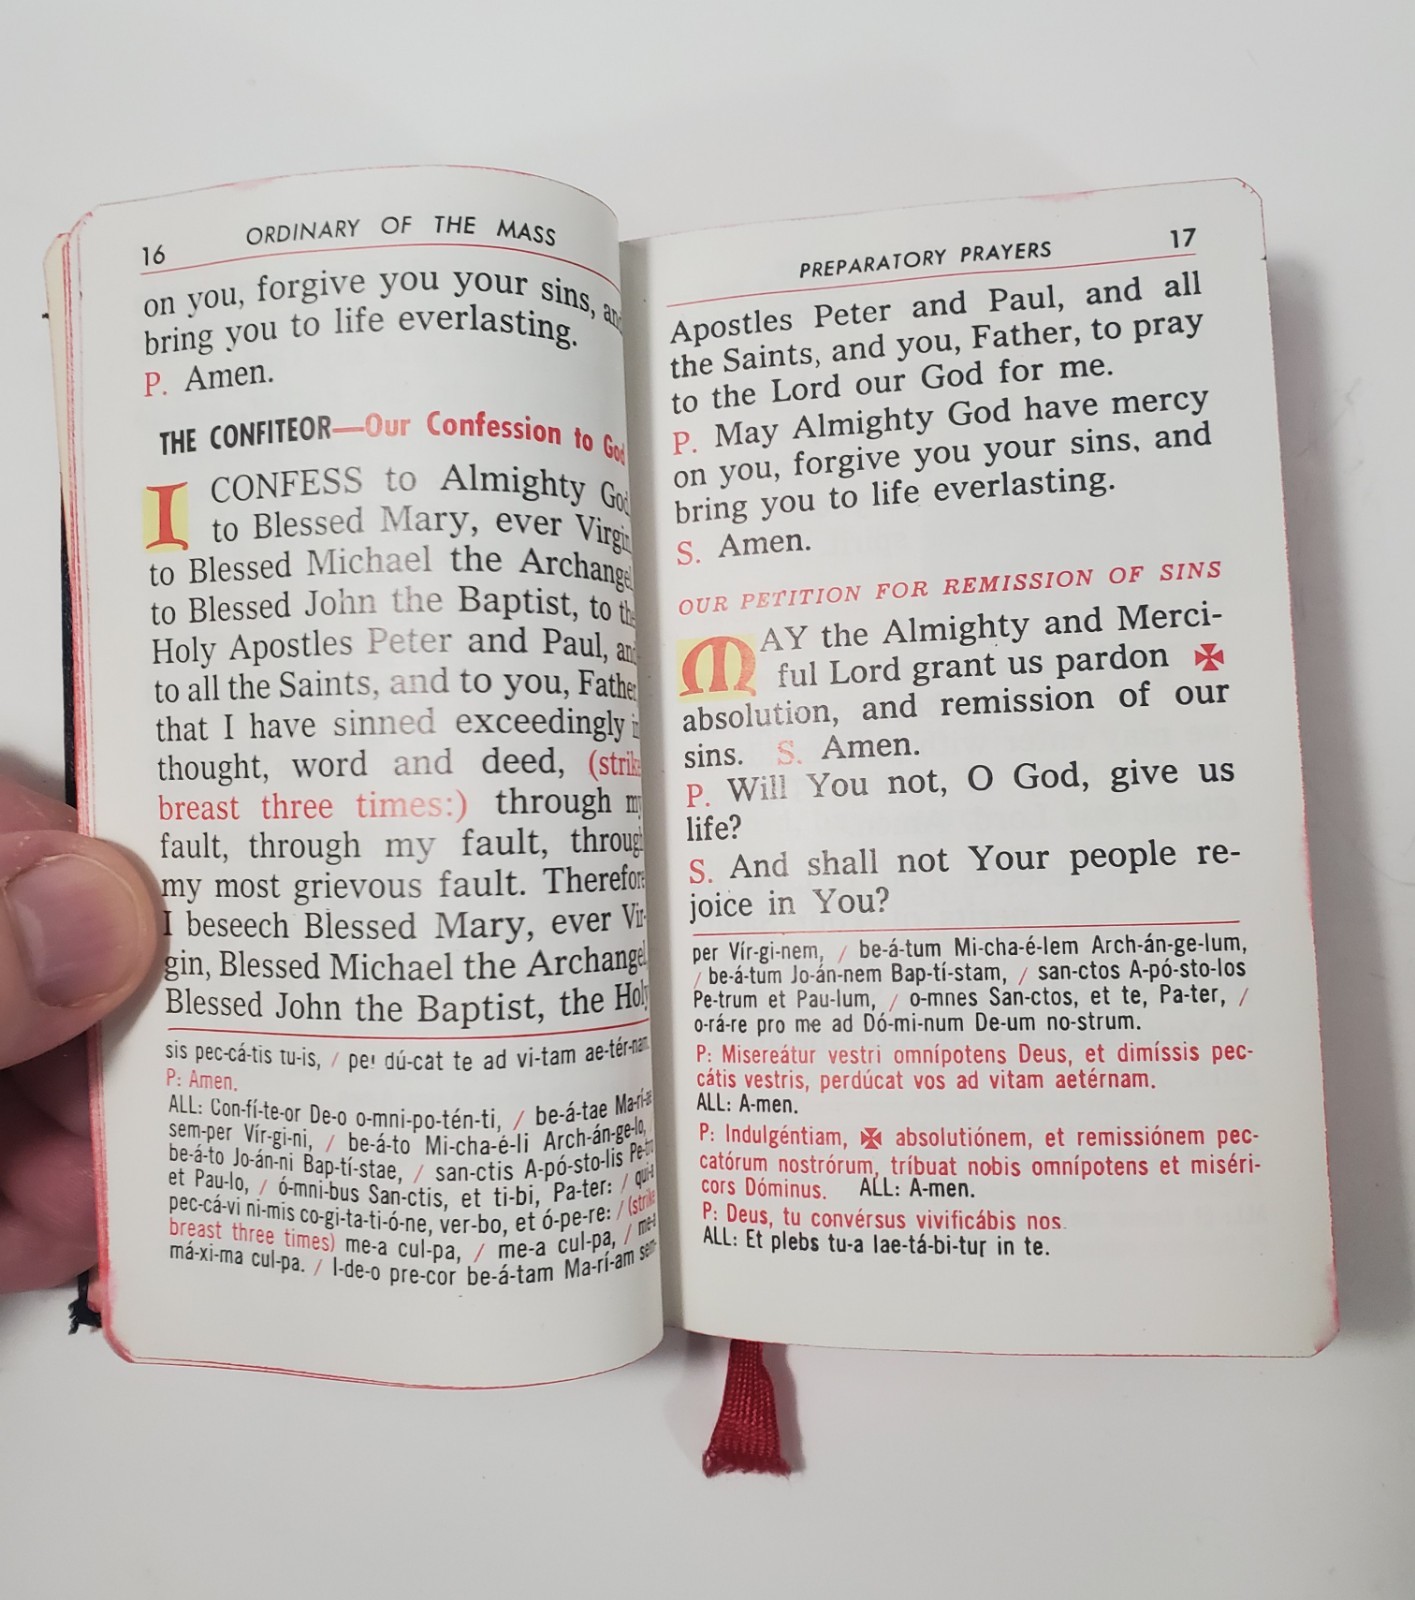 16 ORDINARY OF THE MASS
on you, forgive you your sins,
bring you to life everlasting.
P. Amen.
THE CONFITEOR—Our Confession to God
I CONFESS to Almighty God
to Blessed Mary, ever Virgin
to Blessed Michael the Archangel
to Blessed John the Baptist, to the
Holy Apostles Peter and Paul, and
to all the Saints, and to you, Father
that I have sinned exceedingly in
thought, word and deed, (strike
breast three times:) through my
fault, through my fault, through
my most grievous fault. Therefore
I beseech Blessed Mary, ever Vir-
gin, Blessed Michael the Archangel,
Blessed John the Baptist, the Holy
sis pec-cá-tis tu-is, / per dú-cat te ad vi-tam ae-tér-nam.
P: Amen.
ALL: Con-fí-te-or De-o o-mni-po-tén-ti, / be-á-tae Ma-rí-ae
sem-per Vír-gi-ni, / be-á-to Mi-cha-é-li Arch-án-ge-lo, /
be-á-to Jo-án-ni Bap-tí-stae, / san-ctis A-pó-sto-lis Pe-tro
et Pau-lo, / ó-mni-bus San-ctis, et ti-bi, Pa-ter: / qui-a
pec-cá-vi ni-mis co-gi-ta-ti-ó-ne, ver-bo, et ó-pe-re: / (strike
breast three times) me-a cul-pa, / me-a cul-pa, / me-a
má-xi-ma cul-pa. / I-de-o pre-cor be-á-tam Ma-rí-am sem-
PREPARATORY PRAYERS 17
Apostles Peter and Paul, and all
the Saints, and you, Father, to pray
to the Lord our God for me.
P. May Almighty God have mercy
on you, forgive you your sins, and
bring you to life everlasting.
S. Amen.
OUR PETITION FOR REMISSION OF SINS
MAY the Almighty and Merci-
ful Lord grant us pardon ✠
absolution, and remission of our
sins. S. Amen.
P. Will You not, O God, give us
life?
S. And shall not Your people re-
joice in You?
per Vír-gi-nem, / be-á-tum Mi-cha-é-lem Arch-án-ge-lum,
/ be-á-tum Jo-án-nem Bap-tí-stam, / san-ctos A-pó-sto-los
Pe-trum et Pau-lum, / o-mnes San-ctos, et te, Pa-ter, /
o-rá-re pro me ad Dó-mi-num De-um no-strum.
P: Misereátur vestri omnípotens Deus, et dimíssis pec-
cátis vestris, perdúcat vos ad vitam aetérnam.
ALL: A-men.
P: Indulgéntiam, ✠ absolutiónem, et remissiónem pec-
catórum nostrórum, tríbuat nobis omnípotens et miséri-
cors Dóminus. ALL: A-men.
P: Deus, tu convérsus vivificábis nos.
ALL: Et plebs tu-a lae-tá-bi-tur in te.